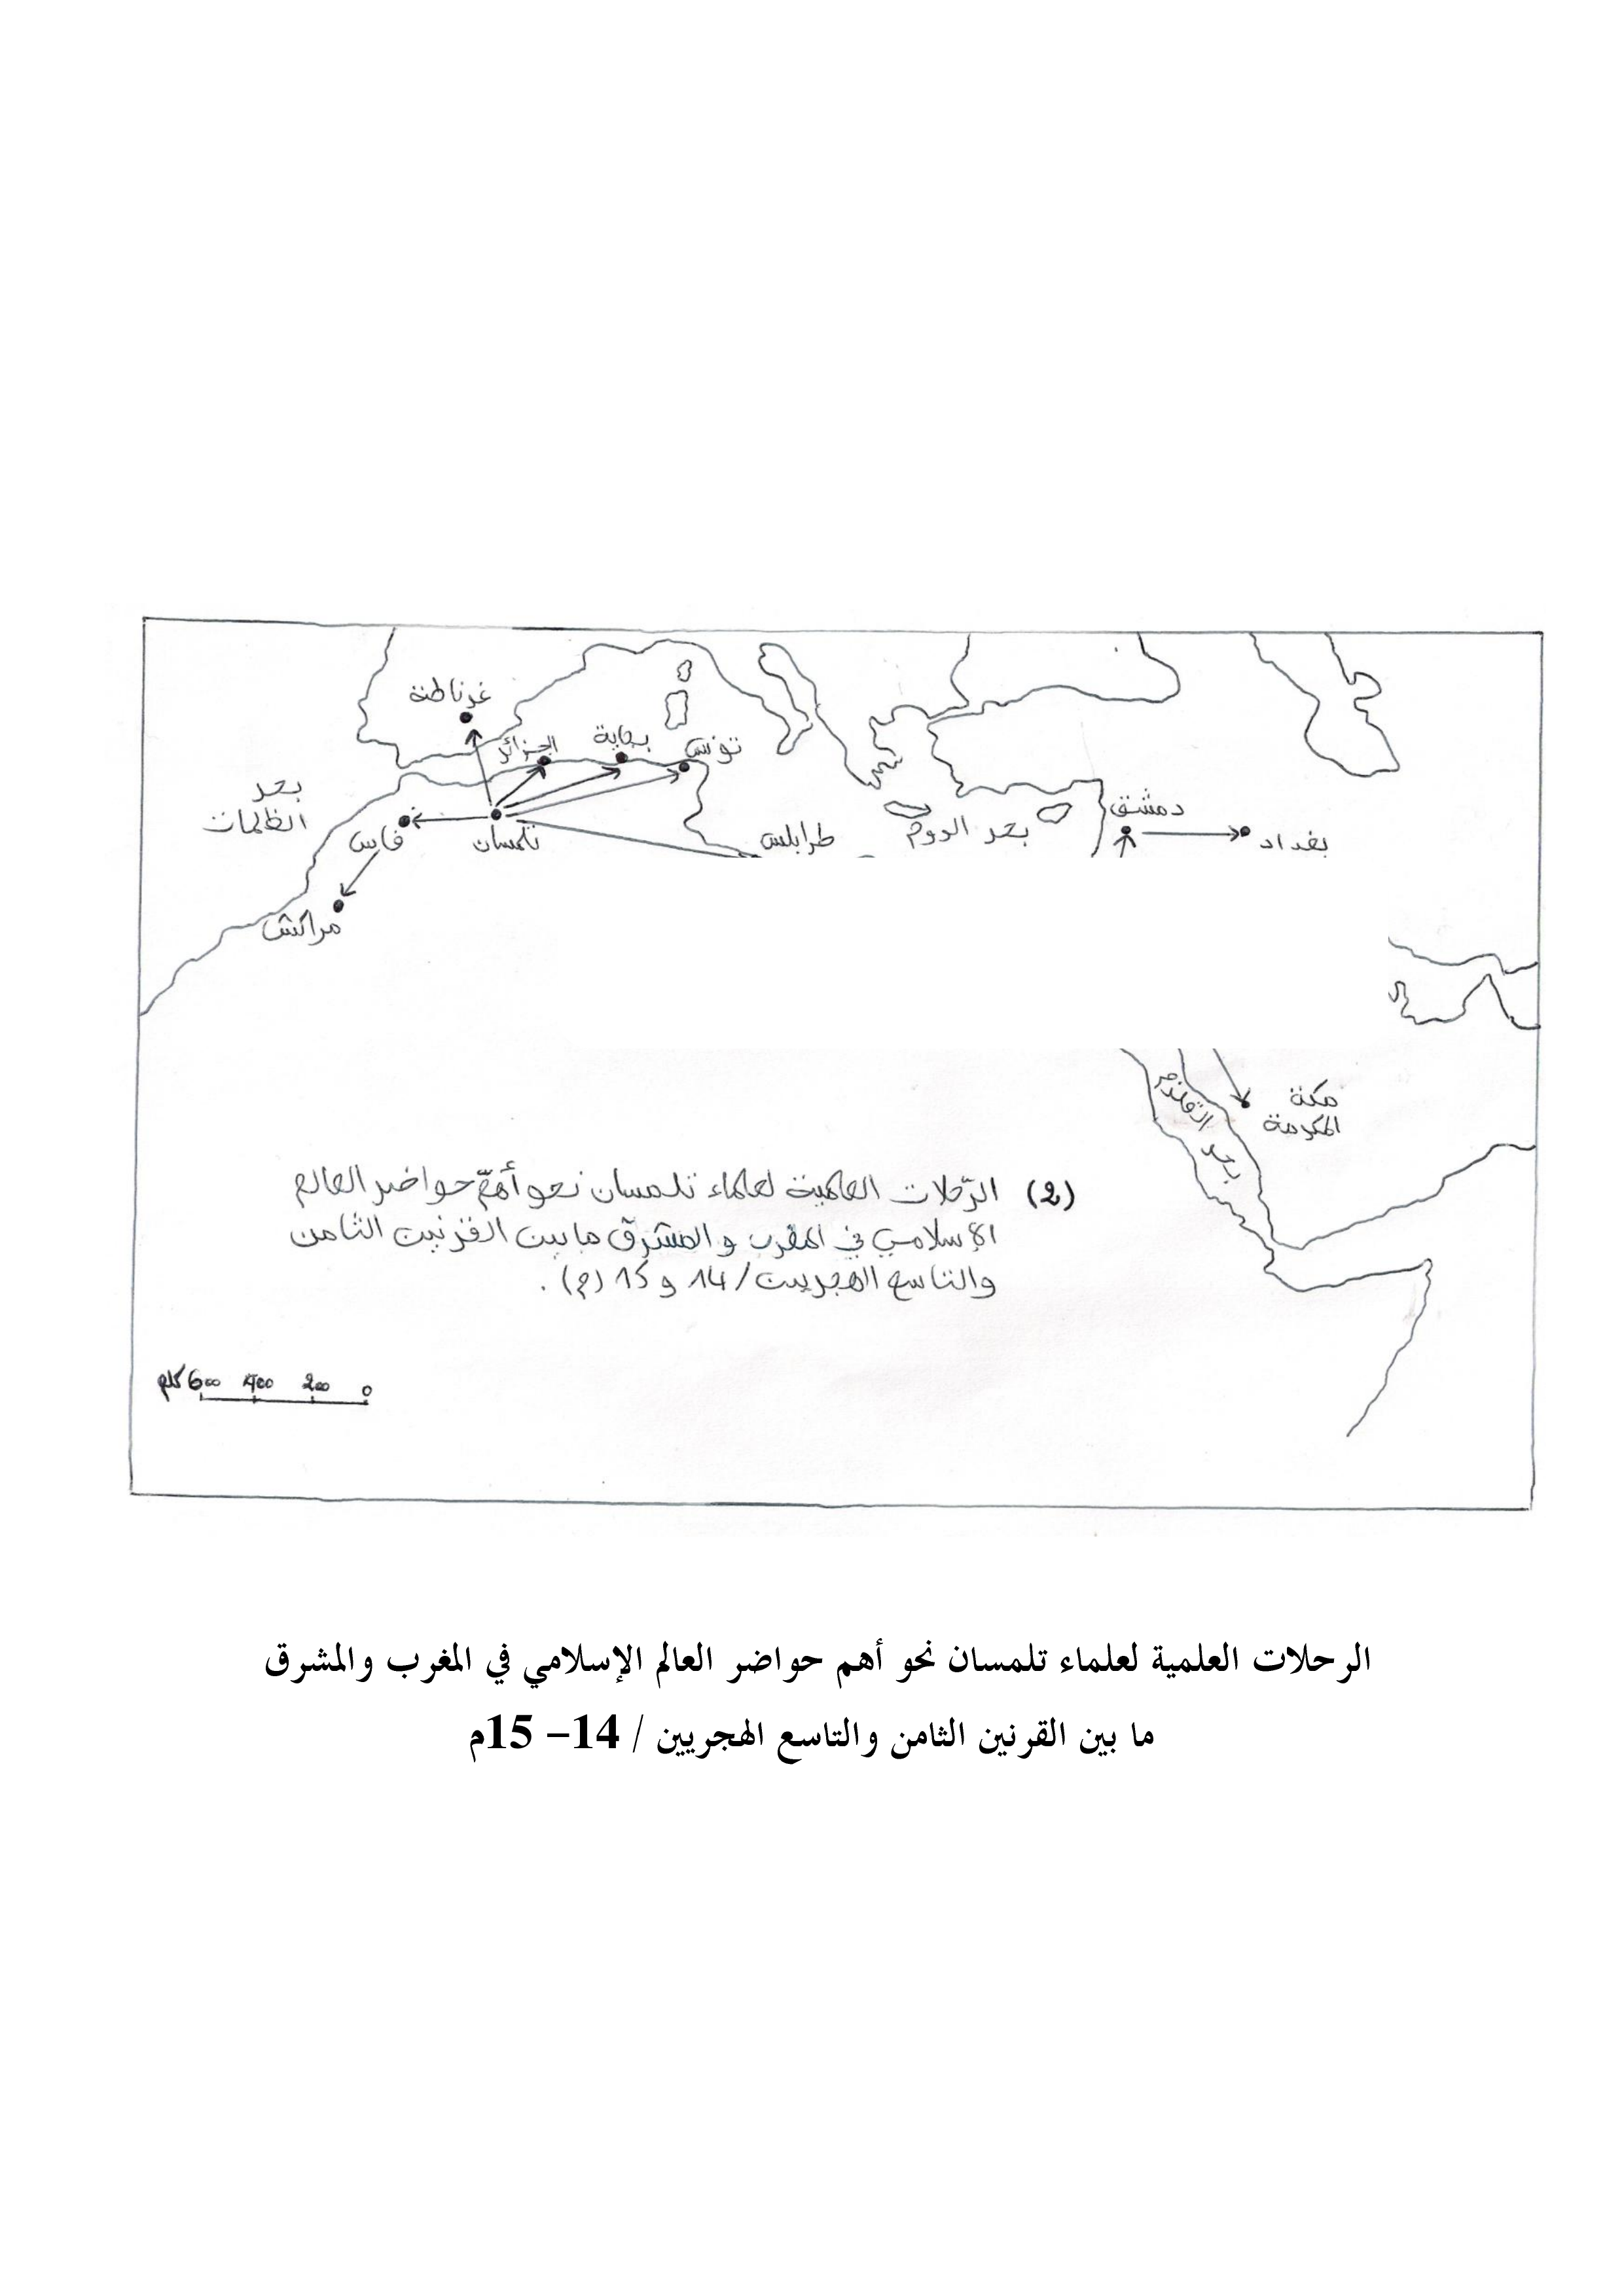 غرناطة
الجزائر
بجاية
تونس
بحر
الظلمات
فاس
تلمسان
طرابلس
بحر الروم
دمشق
بغداد
مراكش
مكة
المكرمة
بحر القلزم
(2) الرّحلات العلمية لعلماء تلمسان نحو أهمّ حواضر العالم
الإسلامي في المغرب والمشرق ما بين القرنين الثامن
والتاسع الهجريين/ 14 و 15 (م).
0 200 400 600 كلم
الرحلات العلمية لعلماء تلمسان نحو أهم حواضر العالم الإسلامي في المغرب والمشرق
ما بين القرنين الثامن والتاسع الهجريين / 14– 15م